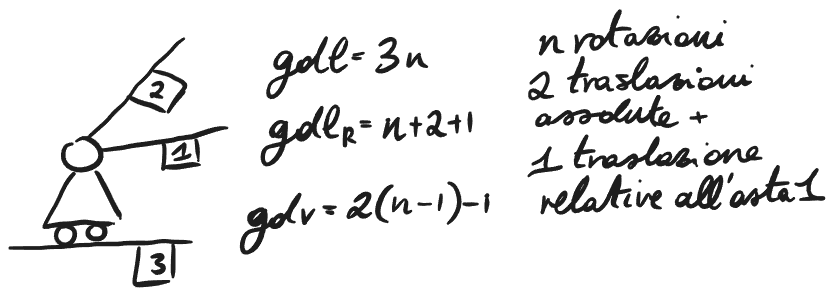 2
1
3
gdl = 3n
gdl_R = n+2+1
gdv = 2(n-1)-1
n rotazioni
2 traslazioni
assolute +
1 traslazione
relative all'asta 1